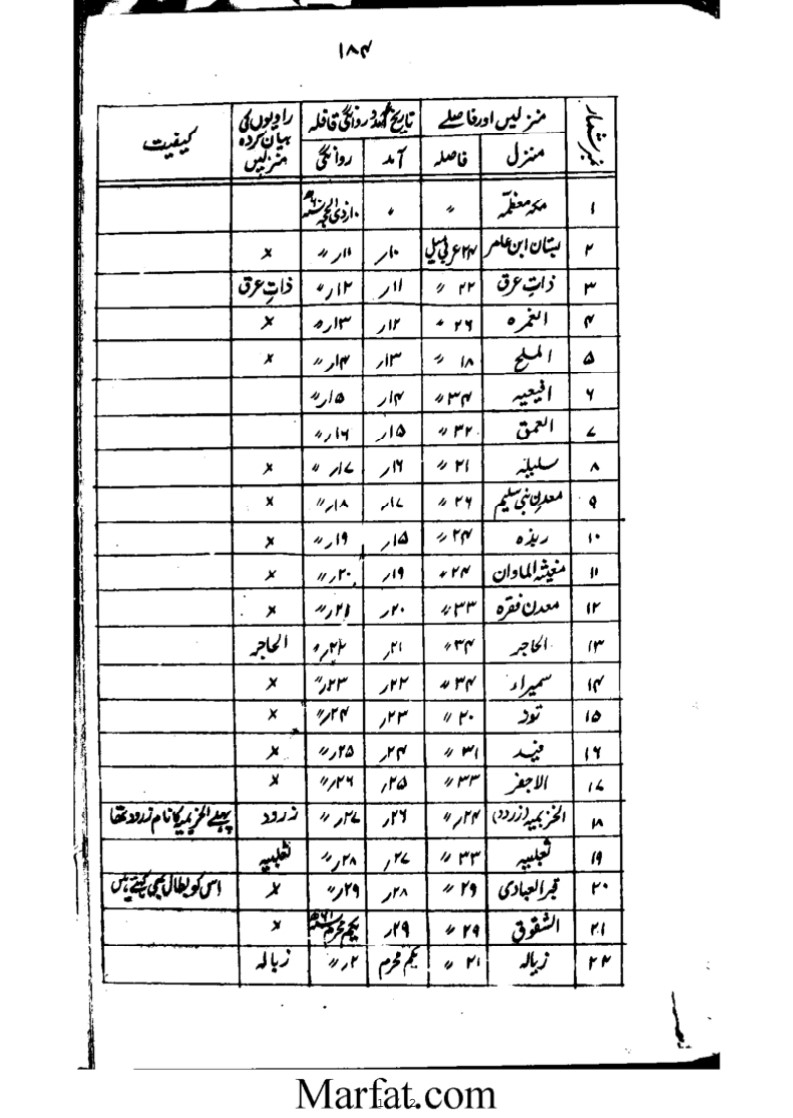 ۱۸۴
نمبر شمار منزلیں اور فاصلے تاریخ آمد و روانگی قافلہ راویوں کی بیان کردہ منزلیں کیفیت
منزل فاصلہ آمد روانگی
۱ مکہ معظمہ 〃 ۰ ۱۰ر ذی الحجہ سنہ ۶۰ھ
۲ بستان ابن عامر ۲۴ عربی میل ۱۰ر ۱۱ر 〃 ×
۳ ذات عرق ۲۲ 〃 ۱۱ر ۱۲ر 〃 ذات عرق
۴ الغمرہ ۲۶ 〃 ۱۲ر ۱۳ر 〃 ×
۵ المسلح ۱۸ 〃 ۱۳ر ۱۴ر 〃 ×
۶ افیعیہ ۳۴ 〃 ۱۴ر ۱۵ر 〃
۷ العمق ۳۲ 〃 ۱۵ر ۱۶ر 〃
۸ سلیلہ ۲۱ 〃 ۱۶ر ۱۷ر 〃 ×
۹ معدن بنی سلیم ۲۶ 〃 ۱۷ر ۱۸ر 〃 ×
۱۰ ربذہ ۲۴ 〃 ۱۵ر ۱۹ر 〃 ×
۱۱ مغیثہ الماوان ۲۴ 〃 ۱۹ر ۲۰ر 〃 ×
۱۲ معدن نقرہ ۳۳ 〃 ۲۰ر ۲۱ر 〃 ×
۱۳ الحاجر ۳۴ 〃 ۲۱ر ۲۲ر 〃 الحاجر
۱۴ سمیراء ۳۴ 〃 ۲۲ر ۲۳ر 〃 ×
۱۵ تود ۲۰ 〃 ۲۳ر ۲۴ر 〃 ×
۱۶ فید ۳۱ 〃 ۲۴ر ۲۵ر 〃 ×
۱۷ الاجفر ۳۳ 〃 ۲۵ر ۲۶ر 〃 ×
۱۸ الخزیمیہ (زرود) ۲۴ر 〃 ۲۶ر ۲۷ر 〃 زرود پہلے الخزیمیہ کا نام زرود تھا
۱۹ ثعلبیہ ۳۳ 〃 ۲۷ر ۲۸ر 〃 ثعلبیہ
۲۰ قبر العبادی ۲۹ 〃 ۲۸ر ۲۹ر 〃 × اس کو بطال بھی کہتے ہیں
۲۱ الشقوق ۲۹ 〃 ۲۹ر یکم محرم سنہ ۶۱ھ ×
۲۲ زبالہ ۲۱ 〃 یکم محرم ۲ر 〃 زبالہ
Marfat.com